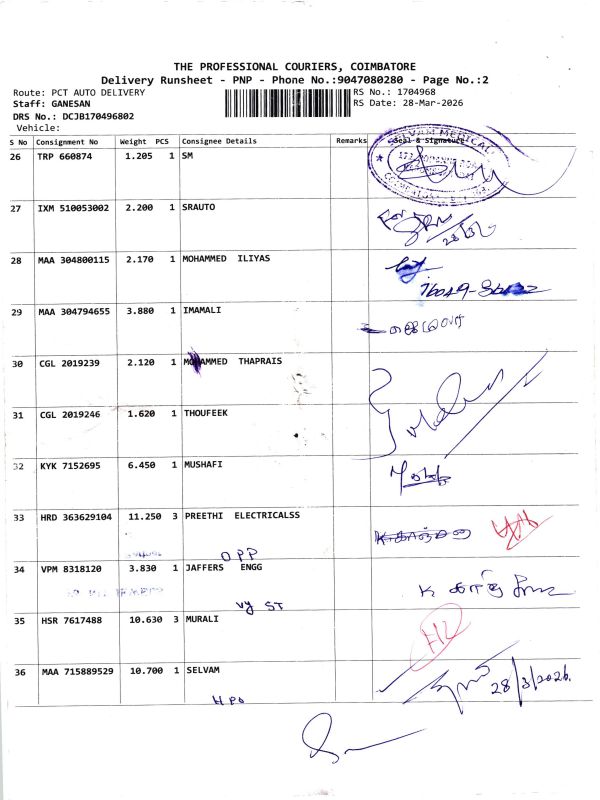 THE PROFESSIONAL COURIERS, COIMBATORE
Delivery Runsheet - PNP - Phone No.:9047080280 - Page No.:2
Route: PCT AUTO DELIVERY RS No.: 1704968
Staff: GANESAN RS Date: 28-Mar-2026
DRS No.: DCJB170496802
Vehicle:
S No Consignment No Weight PCS Consignee Details Remarks Seal & Signature
SELVAM MEDICAL
26 TRP 660874 1.205 1 SM
27 IXM 510053002 2.200 1 SRAUTO
For
28 MAA 304800115 2.170 1 MOHAMMED ILIYAS
29 MAA 304794655 3.880 1 IMAMALI
30 CGL 2019239 2.120 1 MOHAMMED THAPRAIS
31 CGL 2019246 1.620 1 THOUFEEK
32 KYK 7152695 6.450 1 MUSHAFI
33 HRD 363629104 11.250 3 PREETHI ELECTRICALSS
OPP
34 VPM 8318120 3.830 1 JAFFERS ENGG
Vy ST
35 HSR 7617488 10.630 3 MURALI
36 MAA 715889529 10.700 1 SELVAM
28/3/2026.
HPO